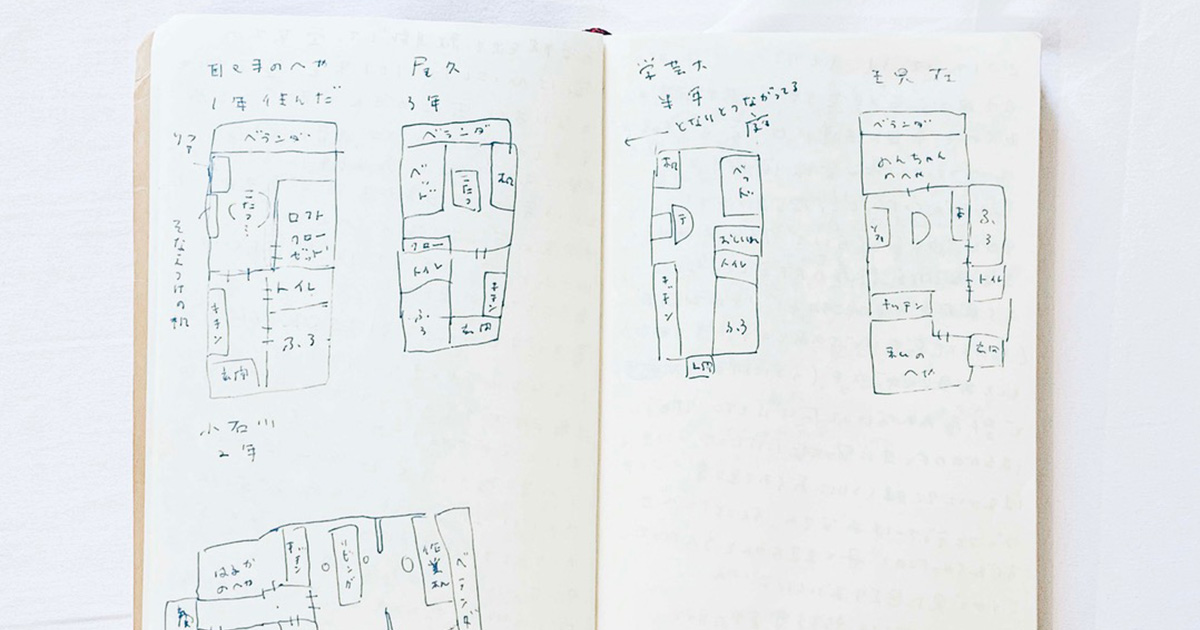 日々手のへや
1年住んだ
ソファ
ベランダ
こたつ
ロフト
クロー
ゼット
そなえつけの机
トイレ
キチン
ふろ
玄関
尾久
3年
ベランダ
ベッド
こたつ
机
クロー
トイレ
キチン
ふろ
玄関
小石川
2年
はるか
のへや
キチン
リビング
作業
ベランダ
学芸大
半年
となりとつながってる
机
ベッド
テ
おしいれ
トイレ
キッチン
ふろ
玄関
ベランダ
のんちゃん
のへや
ソファ
ふろ
トイレ
キッチン
私の
へや
玄関